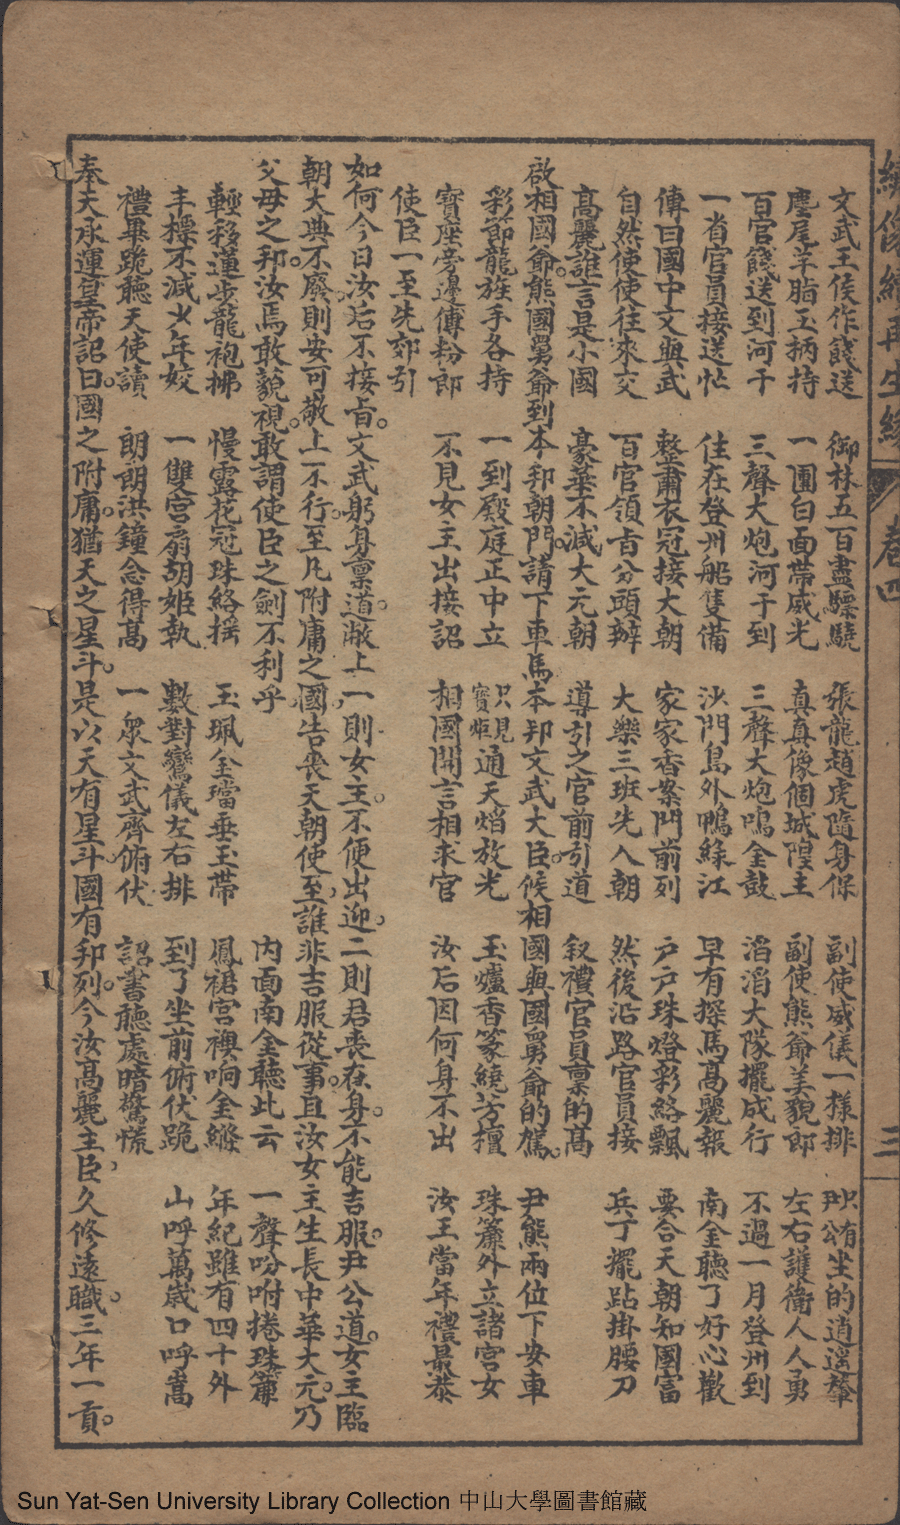 繡像續再生緣 卷四 三
文武王侯作餞送 御林五百盡驃驍 張龍趙虎隨身保 副使威儀一樣排 尹公坐的逍遥輦
麈尾羊脂玉柄持 一團白面帶威光 真真像個城隍主 副使熊爺美貌郎 左右護衛人人勇
百官餞送到河干 三聲大炮河干到 三聲大炮鳴金鼓 滔滔大隊擺成行 不過一月登州到
一省官員接送忙 住在登州船隻備 沙門島外鴨綠江 早有探馬高麗報 南金聽了好心歡
傳曰國中文與武 整肅衣冠接大朝 家家香案門前列 戶戶珠燈彩絡飄 要合天朝知國富
自然使使往來交 百官領旨分頭辦 大樂三班先入朝 然後沿路官員接 兵丁擺跕掛腰刀
高麗誰言是小國 豪華不減大元朝 導引之官前引道 叙禮官員禀的高
啟相國爺熊國舅爺到本邦朝門請下車馬本邦文武大臣候相國與國舅爺的駕 尹熊兩位下安車
彩節龍旌手各持 一到殿庭正中立 只見寳炬通天熖放光 玉爐香篆繞芳檀 珠簾外立諸宮女
寳座旁邊傅粉郎 不見女主出接詔 相國開言相求官 汝后因何身不出 汝王當年禮最恭
使臣一至先郊引
如何今日汝后不接旨。文武躬身禀道。敝上一則女主。不便出迎。二則君喪在身。不能吉服。尹公道。女主臨
朝大典不廢。則安可敬上一不行。至凡附庸之國。告喪天朝使至。誰非吉服從事。且汝女主生長中華大元。乃
父母之邦。汝焉敢藐視。敢謂使臣之劍不利乎 内面南金聽此云 一聲吩咐捲珠簾
輕移蓮步龍袍拂 慢露花冠珠絡摇 玉珮金璫垂玉帶 鳳裙宮襖响金縧 年紀雖有四十外
丰標不減少年姣 一雙宮扇胡姬執 數對鸞儀左右排 到了坐前俯伏跪 山呼萬歲口呼嵩
禮畢跪聽天使讀 朗朗洪鐘念得高 一眾文武齊俯伏 詔書聽處暗驚慌
奉天承運皇帝詔曰。國之附庸。猶天之星斗。是以天有星斗。國有邦列。今汝高麗主臣。久修遠職。三年一貢。
Sun Yat-Sen University Library Collection 中山大學圖書館藏